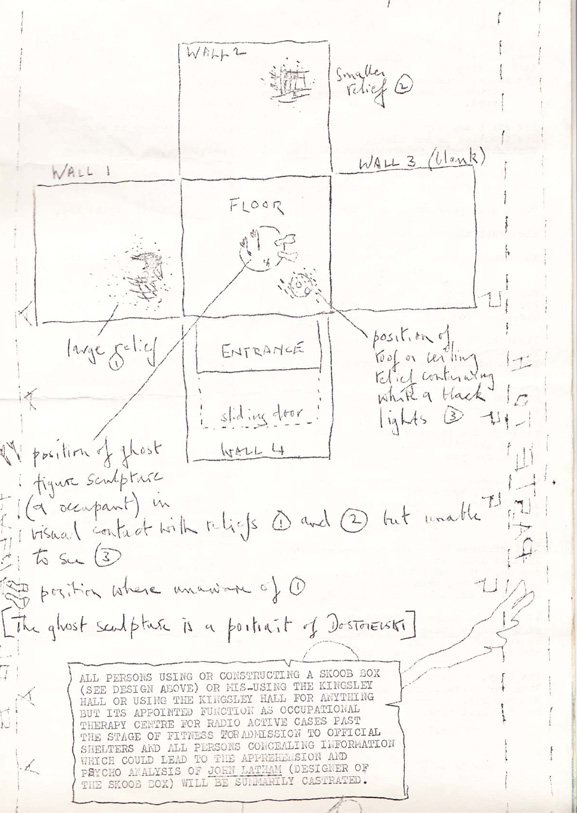 WALL 2
smaller
relief ②
WALL 1
WALL 3 (blank)
FLOOR
large relief
①
position of
roof or ceiling
relief containing
white & black
lights ③
ENTRANCE
sliding door
WALL 4
position of ghost
figure sculpture
(& occupant) in
visual contact with reliefs ① and ② but unable
to see ③
position where unaware of ①
[The ghost sculpture is a portrait of DOSTOIEVSKI]
PASTE
ALL PERSONS USING OR CONSTRUCTING A SKOOB BOX
(SEE DESIGN ABOVE) OR MIS-USING THE KINGSLEY
HALL OR USING THE KINGSLEY HALL FOR ANYTHING
BUT ITS APPOINTED FUNCTION AS OCCUPATIONAL
THERAPY CENTRE FOR RADIO ACTIVE CASES PAST
THE STAGE OF FITNESS FOR ADMISSION TO OFFICIAL
SHELTERS AND ALL PERSONS CONCEALING INFORMATION
WHICH COULD LEAD TO THE APPREHENSION AND
PSYCHO ANALYSIS OF JOHN LATHAM (DESIGNER OF
THE SKOOB BOX) WILL BE SUMMARILY CASTRATED.